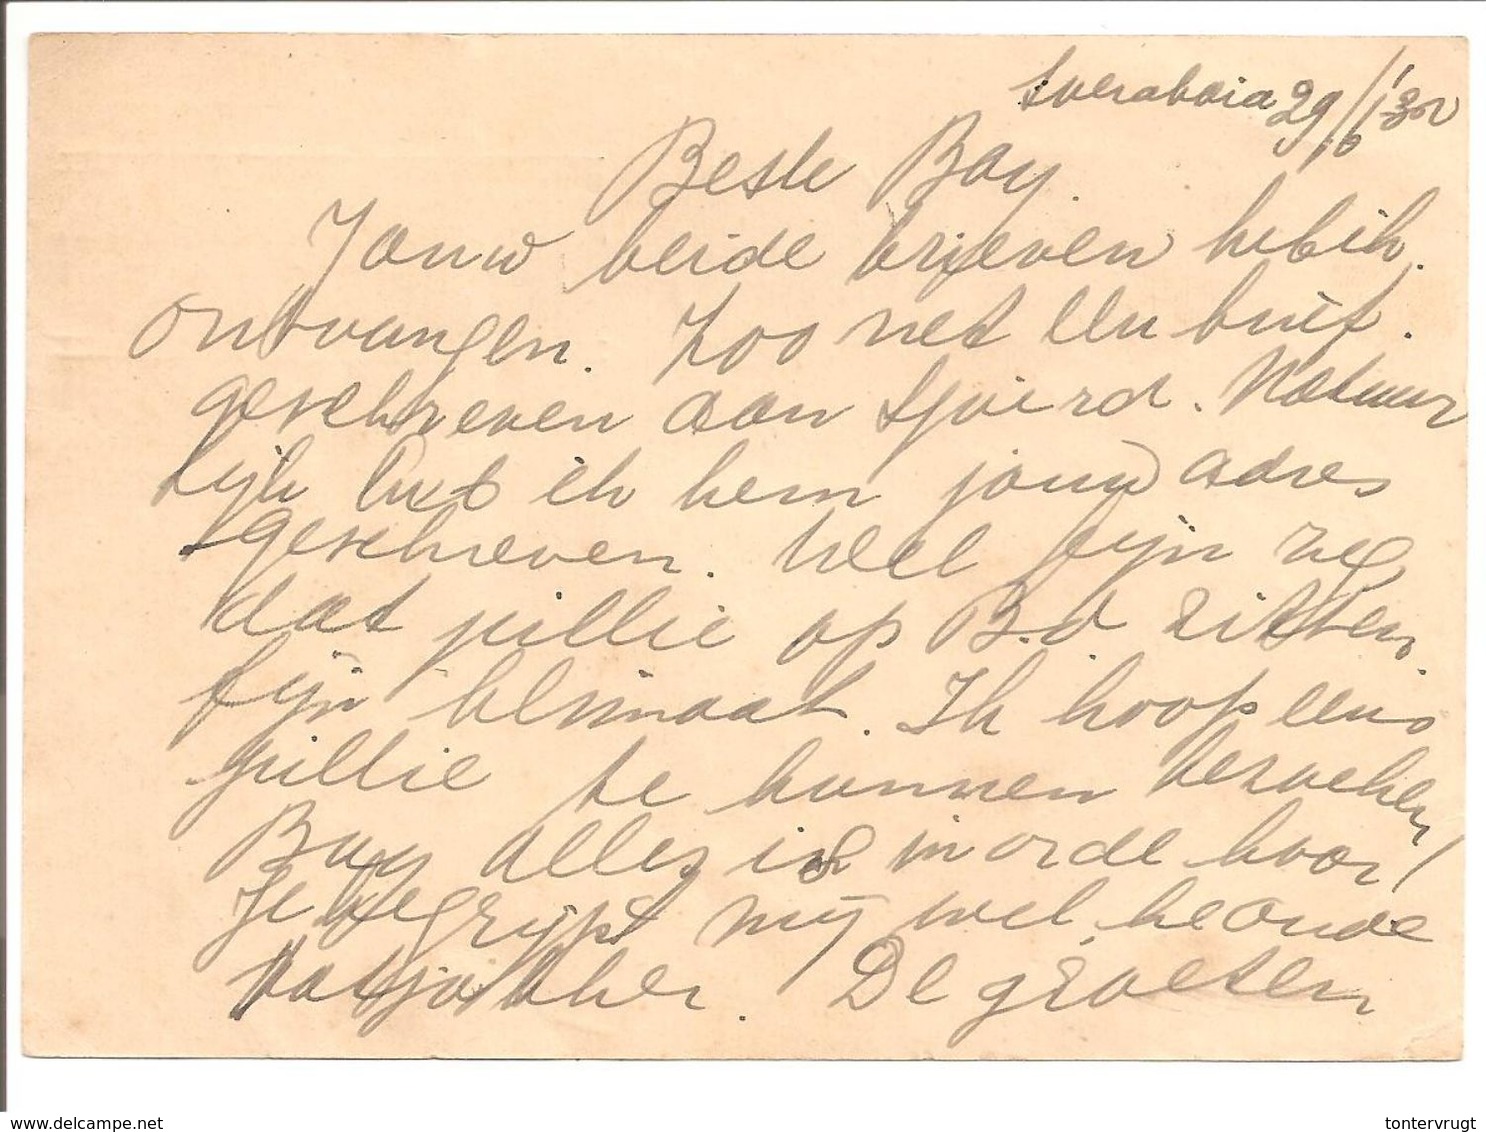 Soerabaia 29/10
Beste Bay.
Jouw beide brieven heb ik
ontvangen. Zoo net een brief.
geschreven aan Sjoerd. Natuur
lijk heb ik hem jouw adres
geschreven. Wel fijn zeg
dat jullie op B.d zitten.
fijn helsmaat. Ik hoop eens
jullie te kunnen bezoeken
Bay alles is in orde hoor!
Je begrijpt mij wel, he oude
De groeten
www.delcampe.net
tontervrugt